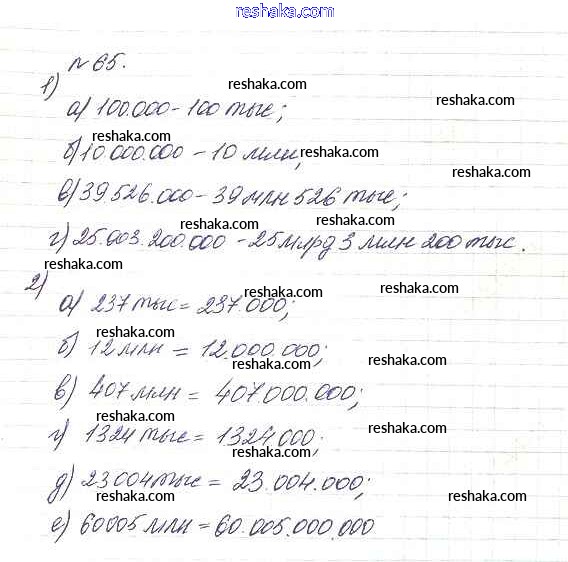 reshaka.com
№65.
1)
reshaka.com
а) 100.000 - 100 тыс;
reshaka.com
reshaka.com
б) 10 000.000 - 10 млн;
reshaka.com
в) 39 526.000 - 39 млн 526 тыс;
reshaka.com
reshaka.com
reshaka.com
г) 25.003.200.000 - 25 млрд 3 млн 200 тыс.
reshaka.com
2)
а) 237 тыс = 237.000;
reshaka.com
reshaka.com
б) 12 млн = 12.000.000;
reshaka.com
в) 407 млн = 407.000.000;
reshaka.com
г) 1324 тыс = 1324.000;
reshaka.com
reshaka.com
д) 23 004 тыс = 23.004.000;
reshaka.com
reshaka.com
е) 60005 млн = 60.005.000.000